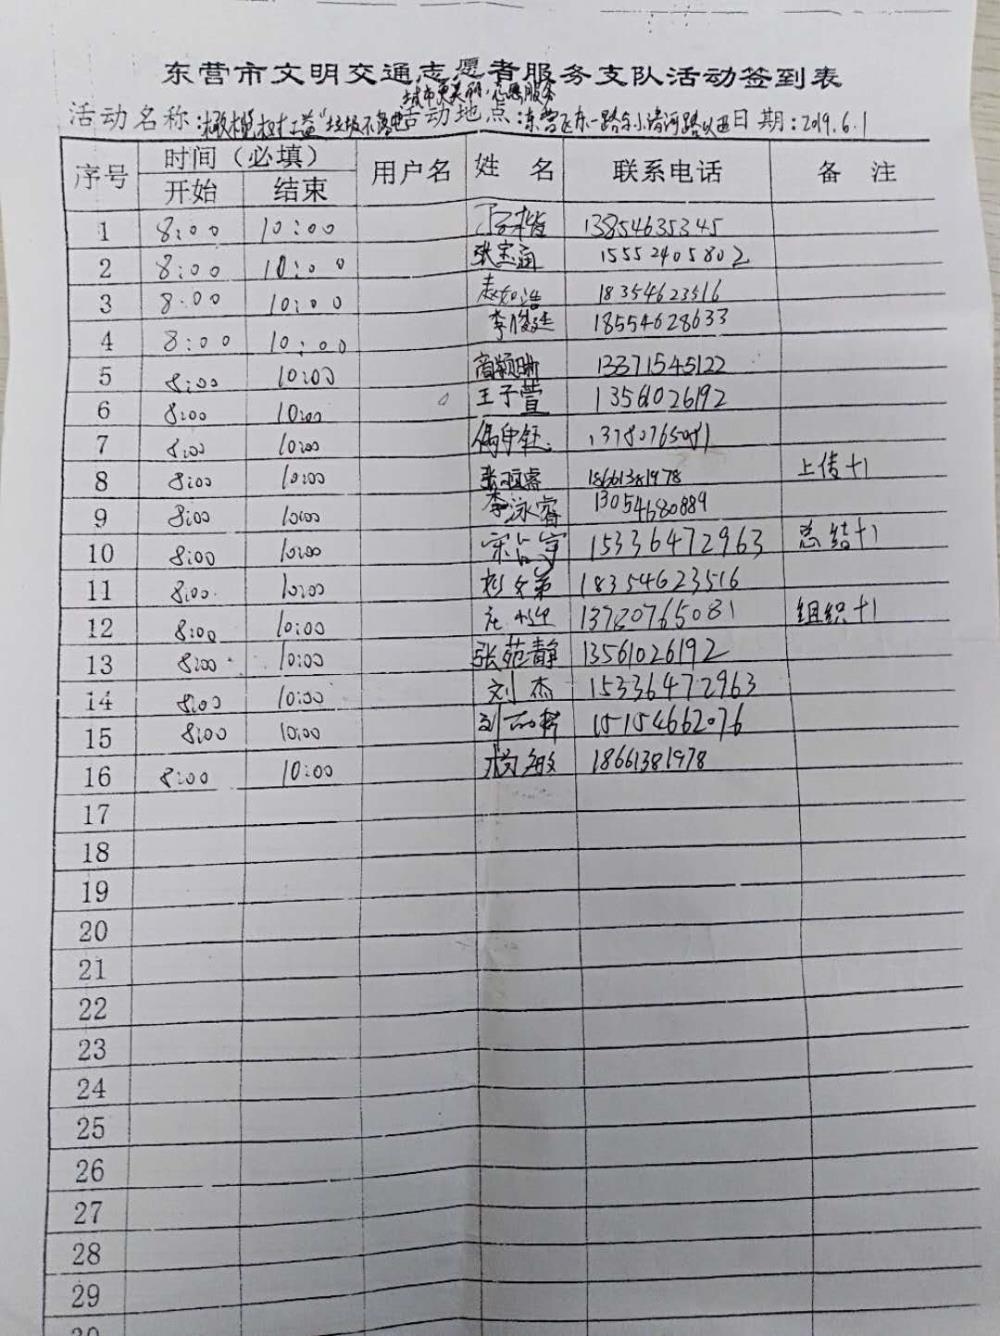 东营市文明交通志愿者服务支队活动签到表
城市更美丽·志愿服务
活动名称：橄榄树公益"垃圾不落地 活动地点：东营区东一路与小清河路以西 日期：2019.6.1
序号 时间（必填） 用户名 姓 名 联系电话 备 注
开始 结束
1 8:00 10:00 13854635345
2 8:00 10:00 张宝涵 15552405802
3 8:00 10:00 赵如浩 18354623516
4 8:00 10:00 李俊廷 18554628633
5 8:00 10:00 商颖晰 13371545122
6 8:00 10:00 王子萱 13561026192
7 8:00 10:00 13780765081
8 8:00 10:00 张珂睿 18661381978 上传+1
9 8:00 10:00 李泳睿 13054680889
10 8:00 10:00 15336472963 总结+1
11 8:00 10:00 18354623516
12 8:00 10:00 13780765081 组织+1
13 8:00 10:00 张苑静 13561026192
14 8:00 10:00 刘杰 15336472963
15 8:00 10:00 15154662076
16 8:00 10:00 杨敏 18661381978
17
18
19
20
21
22
23
24
25
26
27
28
29
30